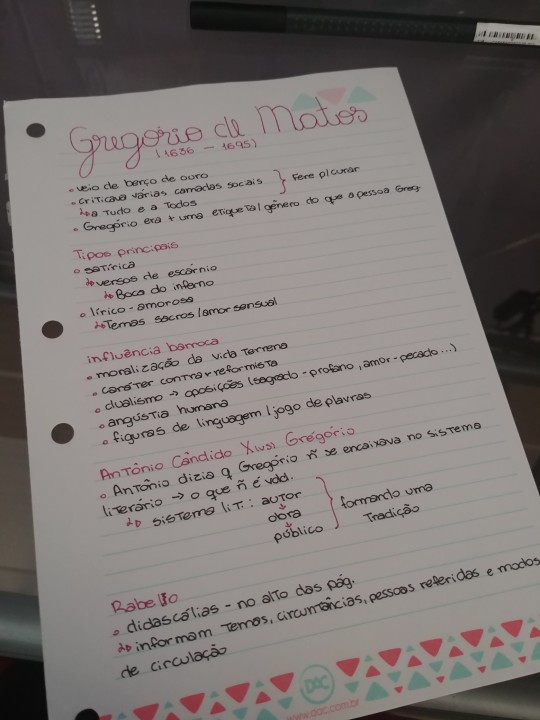 Gregório de Matos
(1636 - 1695)
• veio de berço de ouro
• criticava várias camadas sociais } Fere p/ curar
↳ a Tudo e a Todos
• Gregório era + uma etiqueta/gênero do que a pessoa Greg.
Tipos principais
• satírica
↳ versos de escárnio
↳ Boca do inferno
• lírico-amorosa
↳ Temas sacros/amor sensual
influência barroca
• moralização da vida terrena
• caráter contrarreformista
• dualismo → oposições (sagrado-profano, amor-pecado...)
• angústia humana
• figuras de linguagem/jogo de plavras
Antônio Cândido X(vs) Gregório
• Antônio dizia q Gregório ñ se encaixava no sistema
literário → o que ñ é vdd.
↳ sistema liT.: autor
obra
público } formando uma
Tradição
Rabello
• didascálias - no alto das pág.
↳ informam Temas, circumtâncias, pessoas referidas e modos
de circulação
DAC
www.dac.com.br